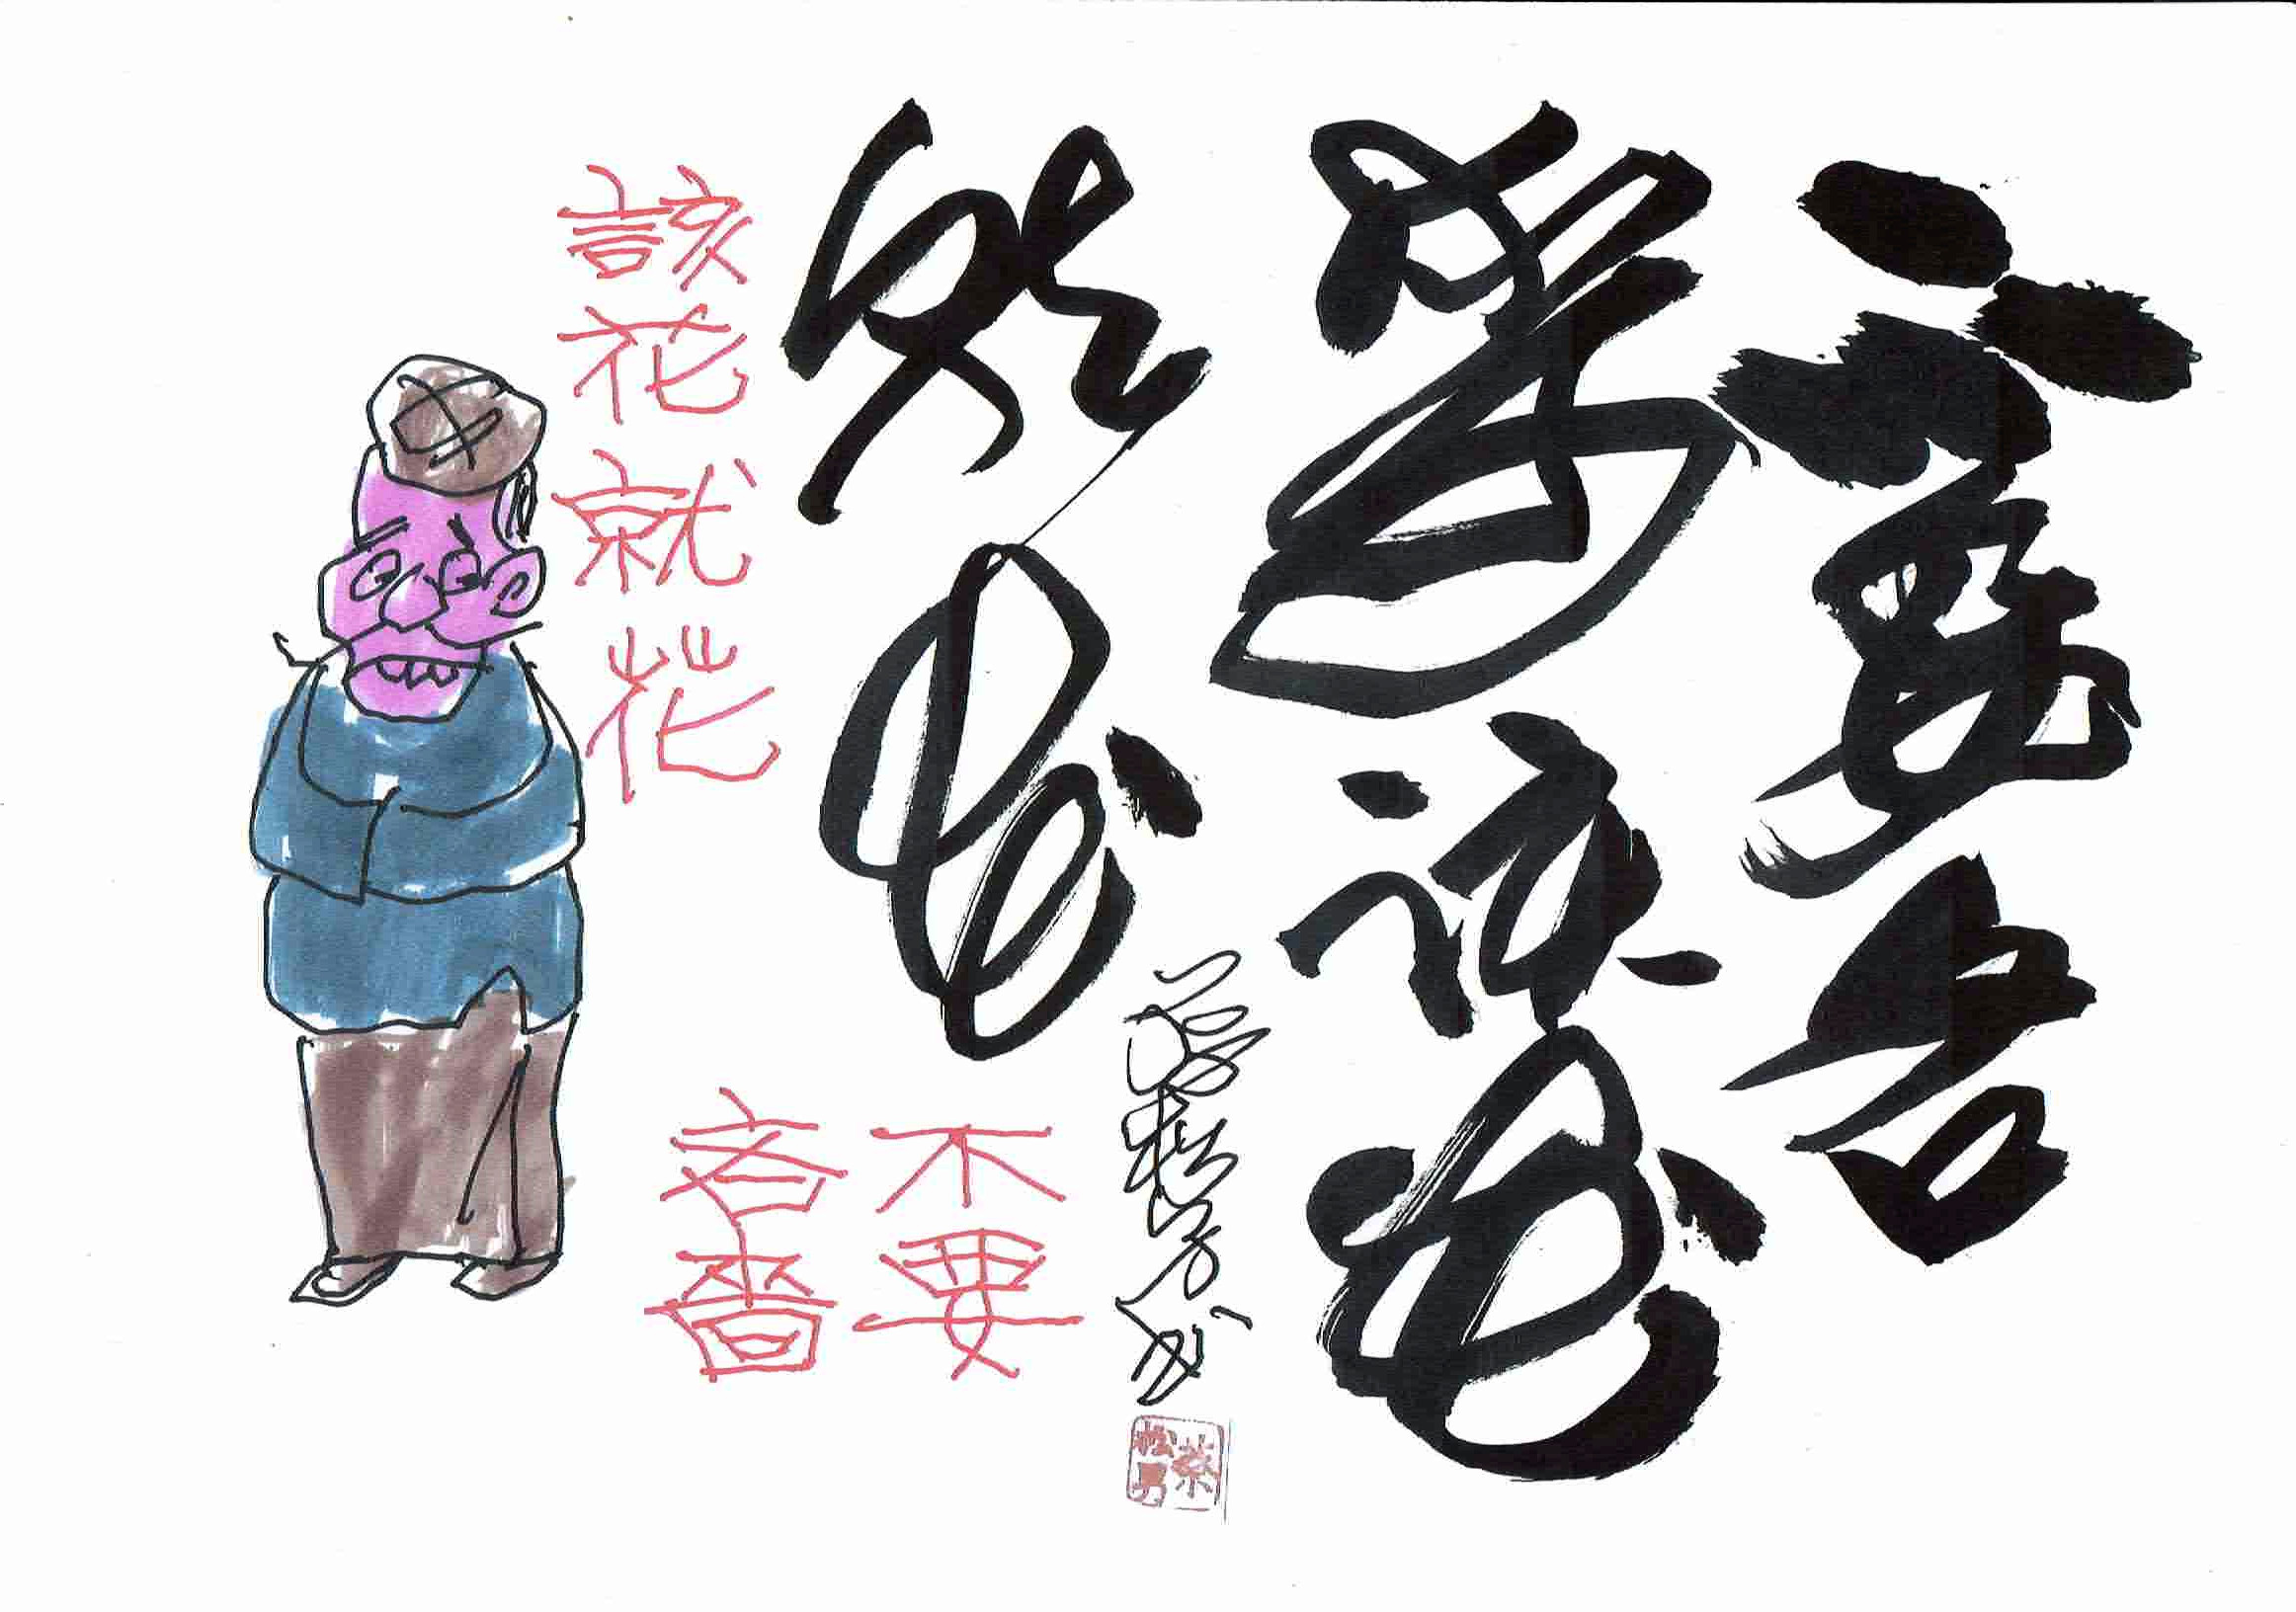 不要吝
嗇該花
就花
蔡
松男
不要
吝嗇
該花就花